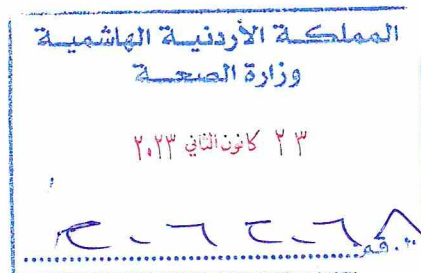 المملكة الأردنية الهاشمية
وزارة الصحة
٢٣ كانون الثاني ٢٠٢٣
رقم